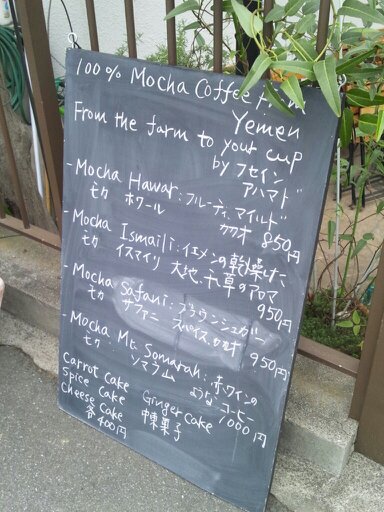 100% Mocha Coffee From
Yemen
From the farm to your cup
by フセイン
アハマド
- Mocha Hawar: フルーティ、マイルド
モカ ホワール カカオ 850円
- Mocha Ismaili: イエメンの乾燥した
モカ イスマイリ 大地、干草のアロマ
950円
- Mocha Safani: ブラウンシュガー
モカ サファニ スパイス、カカオ
950円
- Mocha Mt. Somarah: 赤ワインの
モカ ソマラ山 ようなコーヒー
1000円
Carrot Cake Ginger Cake
Spice Cake
Cheese Cake 中東菓子
各400円